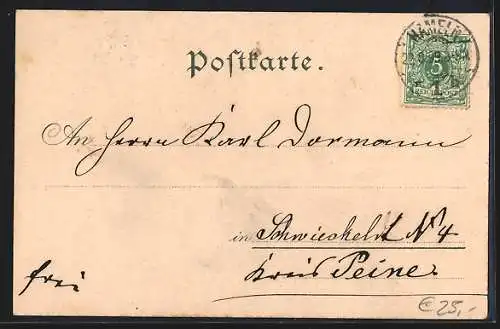 HAMELN
5
Postkarte.
An Herrn Karl Dormann
in Schwicheldt No 4
frei
Kreis Peine
€ 25,-